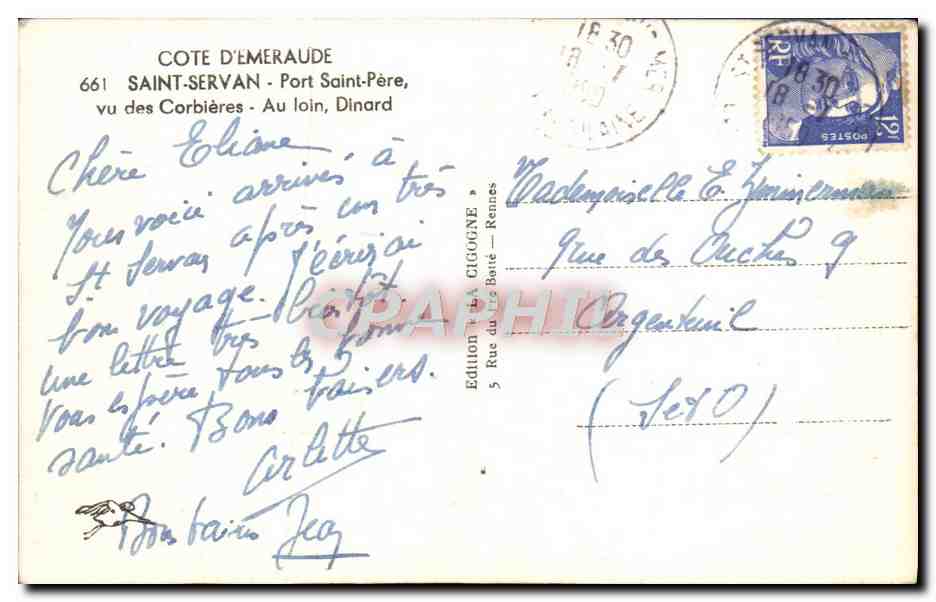 COTE D'EMERAUDE
661 SAINT-SERVAN - Port Saint-Père,
vu des Corbières - Au loin, Dinard
Chère Eliane,
Nous voici arrivés, à
St. Servan après un très
bon voyage. J'écrirai
une lettre très bientôt.
Vous espère tous les bonne
santé. Bons baisers.
Arlette
Bons baisers Jean
Edition « LA CIGOGNE »
5 Rue du Botté — Rennes
18 30
18
MER
VILAINE
18 30
18
RF
POSTES
12F
Mademoiselle E.
9 rue des Ouches 9
Argenteuil
(S et O)
CPAPHIL